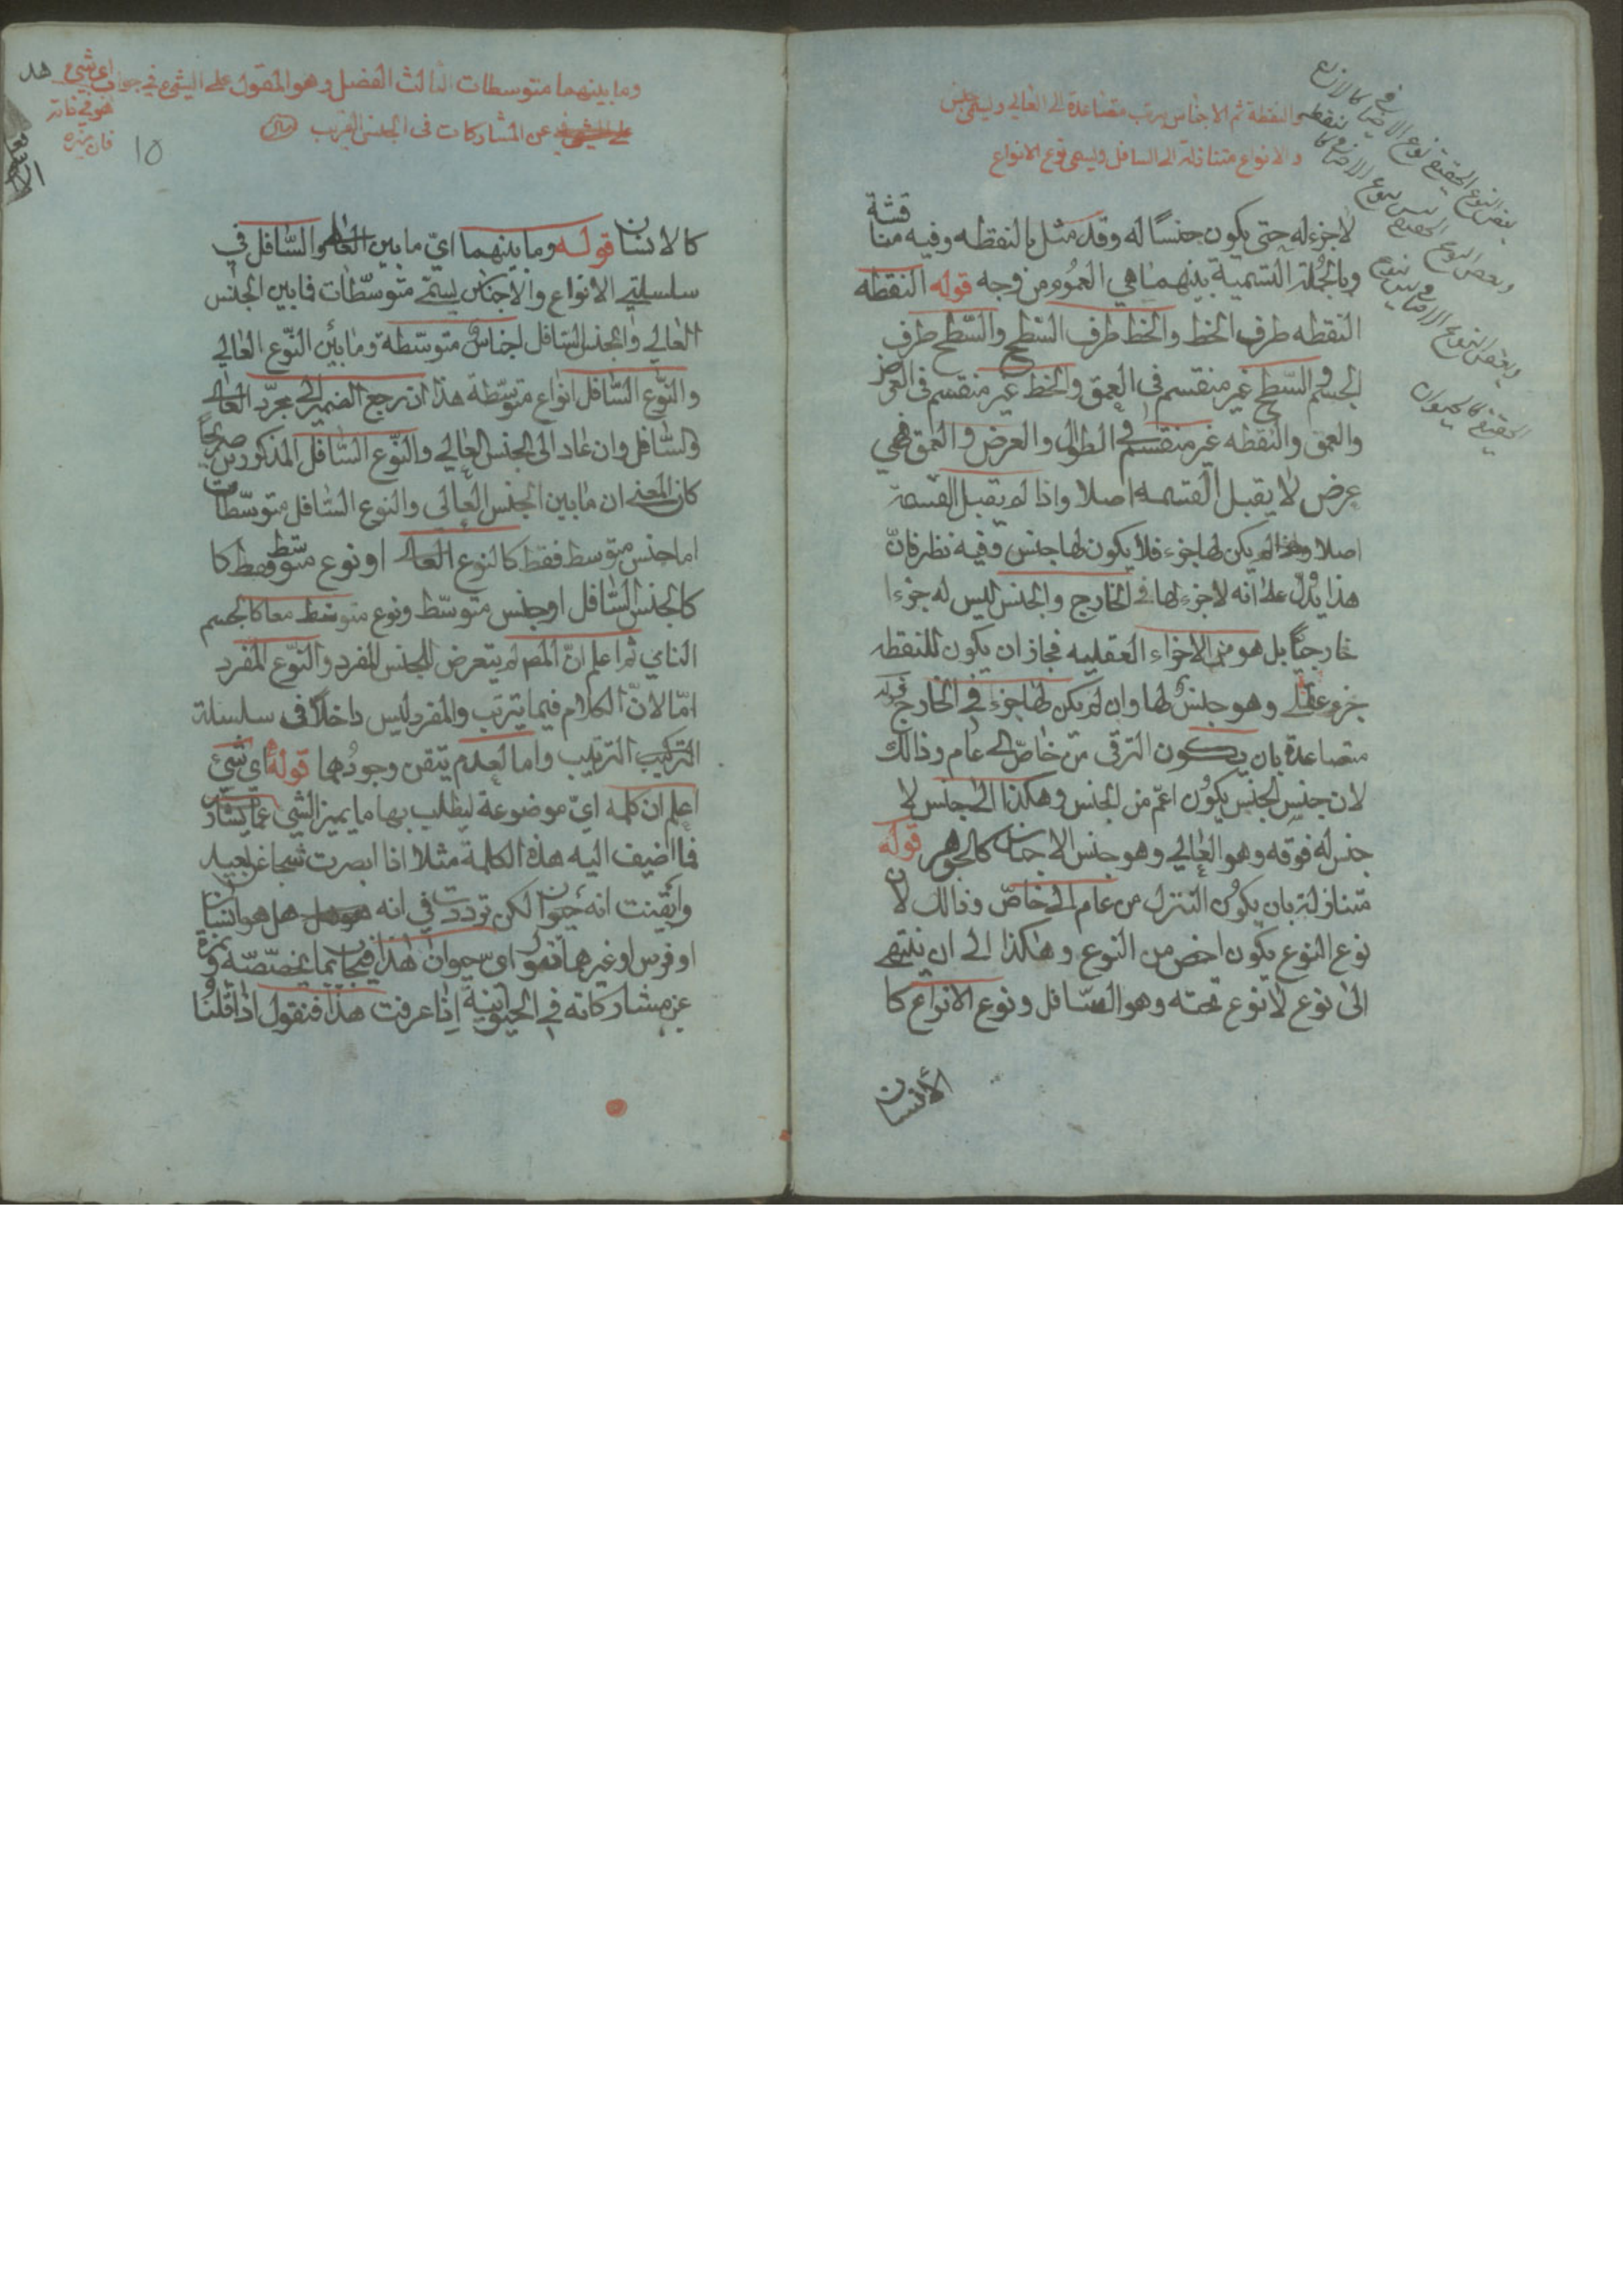 والنقطة ثم الاجناس يترتب متصاعدة الى العالي ويسمى جنس
والانواع متنازلة الى السافل ويسمى نوع الانواع
بعض النوع الحقيقي نوع الاضافي كالانسان
وبعض النوع الحقيقي ليس بنوع الاضافي كالنقطه
وبعض النوع الاضافي ليس بنوع
الحقيقي كالحيوان
لاجزء له حتى يكون جنسًا له وقد مثل بالنقطه وفيه مناقشة
وبالجملة النسمية بينهما هي العموم من وجه قوله النقطه
النقطه طرف الخط والخط طرف السّطح والسّطح طرف
الجسم والسّطح غير منقسم في العمق والخط غير منقسم في العرض
والعمق والنقطه غير منقسم في الطول والعرض والعمق فهي
عرض لا يقبل القسمه اصلا واذا لم يقبل القسمة
اصلا لم يكن لها جزء فلا يكون لها جنس وفيه نظر فانّ
هذا يدل على انه لاجزء لها في الخارج والجنس ليس له جزءا
خارجيًّا بل هو من الاجزاء العقليه فجاز ان يكون للنقطه
جزء عقلي وهو جنس لها وان لم يكن لها جزء في الخارج قوله
متصاعدة بان يكون الترقى من خاصّ الى عام وذالك
لان جنس الجنس يكون اعمّ من الجنس وهكذا الى جنس لا
جنس له فوقه وهو العالي وهو جنس الاجناس كالجوهر قوله
متنازلة بان يكون التنزل من عام الى خاصّ وذالك لان
نوع النوع يكون اخص من النوع وهكذا الى ان ينتهي
الى نوع لانوع تحته وهو السّافل ونوع الانواع كا
الأنسان
وما بينهما متوسطات الثالث الفصل وهو المقول على الشيء في جواب اي شيء
هو في ذاته
فان ميزه
عن المشاركات في الجنس القريب
١٥
كالانسان قوله وما بينهما ايّ ما بين العالي والسّافل في
سلسلتي الانواع والاجناس يسمّى متوسّطات فما بين الجنس
العالي والجنس السّافل اجناسٌ متوسّطة وما بين النّوع العالي
والنّوع السّافل انواع متوسّطة هذا ان رجع الضمير الى مجرّد العالي
والسّافل وان عاد الى الجنس العالي والنّوع السّافل المذكورين صريحًا
كان المعنى ان ما بين الجنس العالي والنوع السّافل متوسّطات
اما جنس متوسط فقط كالنوع العالي او نوع متوسّط فقط كا
كالجنس السّافل او جنس متوسّط ونوع متوسّط معا كالجسم
النامي ثم اعلم انّ المصـ لم يتعرض للجنس المفرد والنّوع المفرد
امّا لانّ الكلام فيما يترتب والمفرد ليس داخلاً في سلسلة
التركيب الترتيب واما لعدم يتقن وجودهما قوله ايّ شيء
اعلم ان كلمه ايّ موضوعة ليطلب بها ما يميز الشي عمّا يشاركه
فما اضيف اليه هذه الكلمة مثلا اذا ابصرت شجا عن بعيد
وايقنت انه حيوان لكن ترددت في انه هل هو انسان
او فرس او غيرهما تقول اي حيوان هذا فيجاب بما يخصّصه ويميزه
عن مشاركاته في الحيوانية اذا عرفت هذا فنقول اذا قلنا